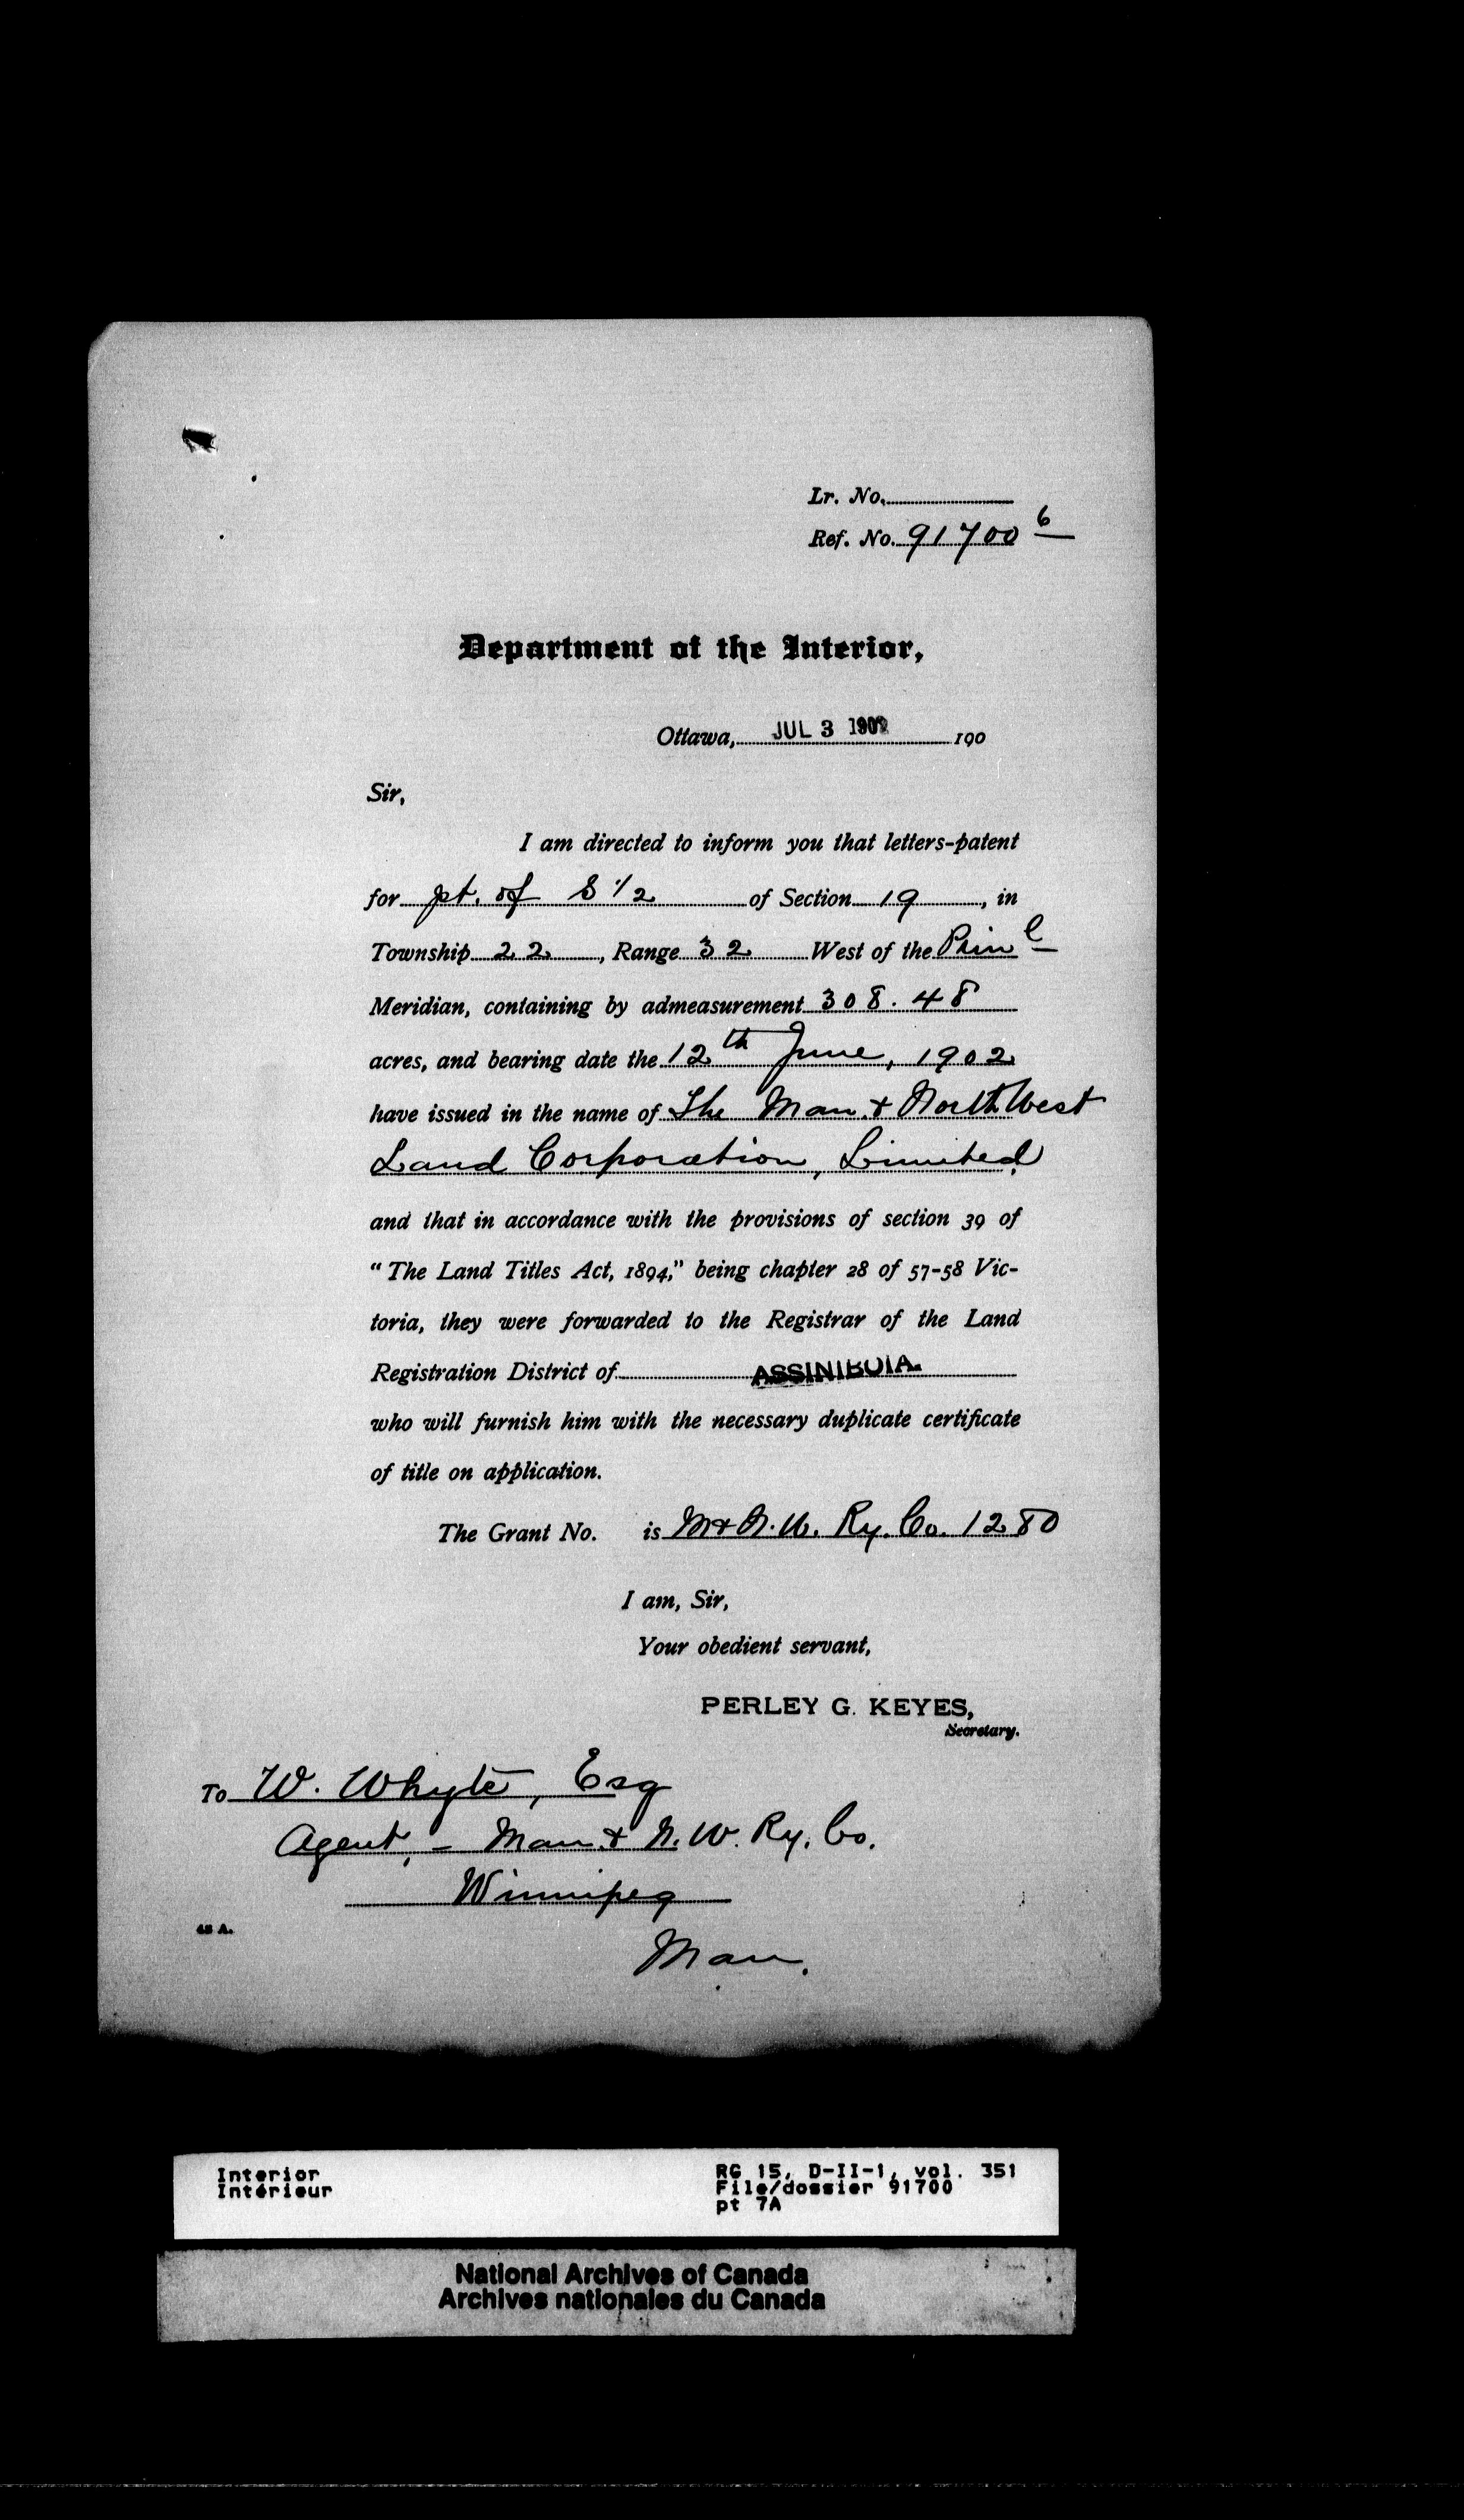 Lr. No.
Ref. No. 91700 6
Department of the Interior,
Ottawa, JUL 3 1902 190
Sir,
I am directed to inform you that letters-patent
for pt. of S 1/2 of Section 19, in
Township 22, Range 32 West of the Prin l
Meridian, containing by admeasurement 308.48
acres, and bearing date the 12th June, 1902
have issued in the name of The Man. & North West
Land Corporation, Limited,
and that in accordance with the provisions of section 39 of
"The Land Titles Act, 1894," being chapter 28 of 57-58 Vic-
toria, they were forwarded to the Registrar of the Land
Registration District of ASSINIBOIA.
who will furnish him with the necessary duplicate certificate
of title on application.
The Grant No. is M & N. W. Ry. Co. 1280
I am, Sir,
Your obedient servant,
PERLEY G. KEYES,
Secretary.
To W. Whyte, Esq
Agent, - Man. & N. W. Ry. Co.
Winnipeg
Man.
Interior
Intérieur
RG 15, D-II-1, vol. 351
File/dossier 91700
pt 7A
National Archives of Canada
Archives nationales du Canada